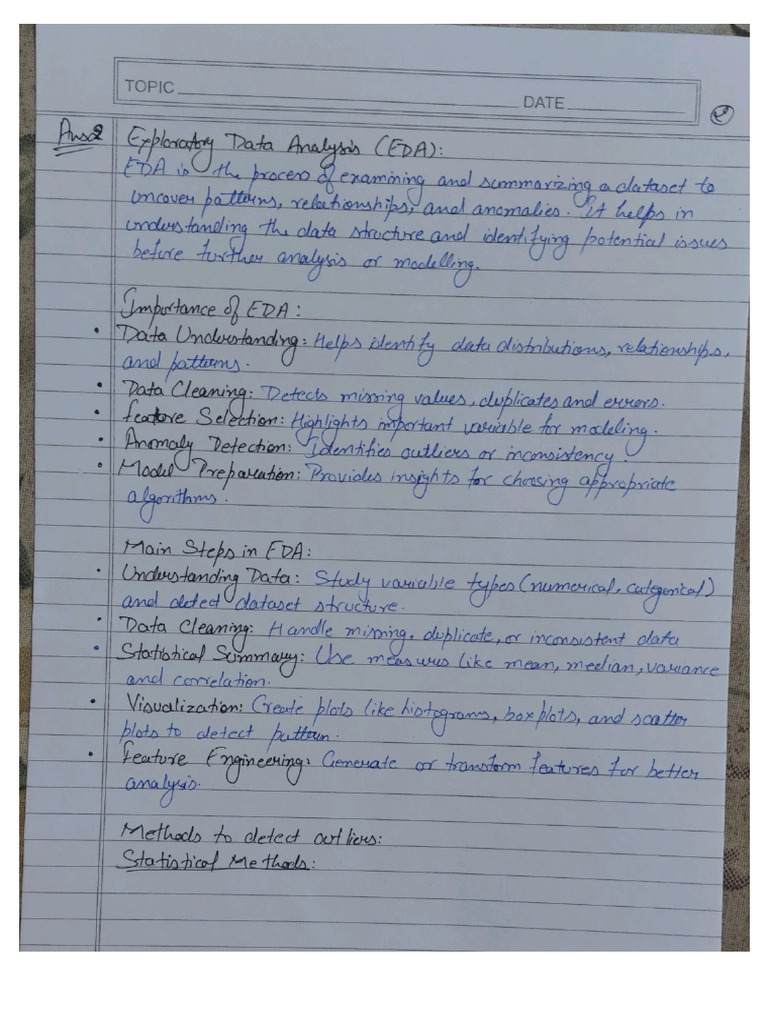 TOPIC
DATE
Ans2 Exploratory Data Analysis (EDA):
EDA is the process of examining and summarizing a dataset to
uncover patterns, relationships, and anomalies. It helps in
understanding the data structure and identifying potential issues
before further analysis or modelling.
Importance of EDA:
• Data Understanding: Helps identify data distributions, relationships,
and patterns.
• Data Cleaning: Detects missing values, duplicates and errors.
• Feature Selection: Highlights important variable for modeling.
• Anomaly Detection: Identifies outliers or inconsistency.
• Model Preparation: Provides insights for choosing appropriate
algorithms.
Main Steps in EDA:
• Understanding Data: Study variable types (numerical, categorical)
and detect dataset structure.
• Data Cleaning: Handle missing, duplicate, or inconsistent data
• Statistical Summary: Use measures like mean, median, variance
and correlation.
• Visualization: Create plots like histograms, box plots, and scatter
plots to detect pattern.
• Feature Engineering: Generate or transform features for better
analysis.
Methods to detect outliers:
Statistical Methods: